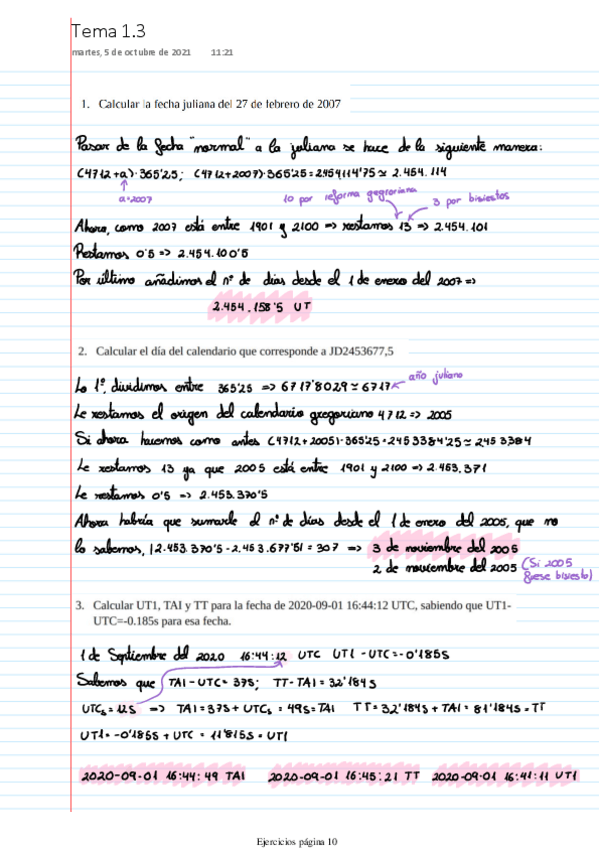 Tema 1.3
martes, 5 de octubre de 2021 11:21
1. Calcular la fecha juliana del 27 de febrero de 2007
Pasar de la fecha "normal" a la juliana se hace de la siguiente manera:
(4712+a)·365'25; (4712+2007)·365'25=2454114'75 ≃ 2.454.114
a=2007
10 por reforma gregroriana
3 por bisiestos
Ahora, como 2007 está entre 1901 y 2100 => restamos 13 => 2.454.101
Restamos 0'5 => 2.454.100'5
Por último añadimos el nº de días desde el 1 de enero del 2007 =>
2.454.158'5 UT
2. Calcular el día del calendario que corresponde a JD2453677,5
Lo 1º, dividimos entre 365'25 => 6717'8029 ≃ 6717
año juliano
Le restamos el origen del calendario gregoriano 4712 => 2005
Si ahora hacemos como antes (4712+2005)·365'25=2453384'25 ≃ 2453384
Le restamos 13 ya que 2005 está entre 1901 y 2100 => 2.453.371
Le restamos 0'5 => 2.453.370'5
Ahora habría que sumarle el nº de días desde el 1 de enero del 2005, que no
lo sabemos, |2.453.370'5-2.453.677'5|=307 => 3 de noviembre del 2005
2 de noviembre del 2005 (Si 2005
fuese bisiesto)
3. Calcular UT1, TAI y TT para la fecha de 2020-09-01 16:44:12 UTC, sabiendo que UT1-
UTC=-0.185s para esa fecha.
1 de Septiembre del 2020 16:44:12 UTC UT1-UTC=-0'185s
Sabemos que TAI-UTC=37s; TT-TAI=32'184s
UTCs=12s => TAI=37s+UTCs=49s=TAI TT=32'184s+TAI=81'184s=TT
UT1=-0'185s+UTC=11'815s=UT1
2020-09-01 16:44:49 TAI 2020-09-01 16:45:21 TT 2020-09-01 16:41:11 UT1
Ejercicios página 10